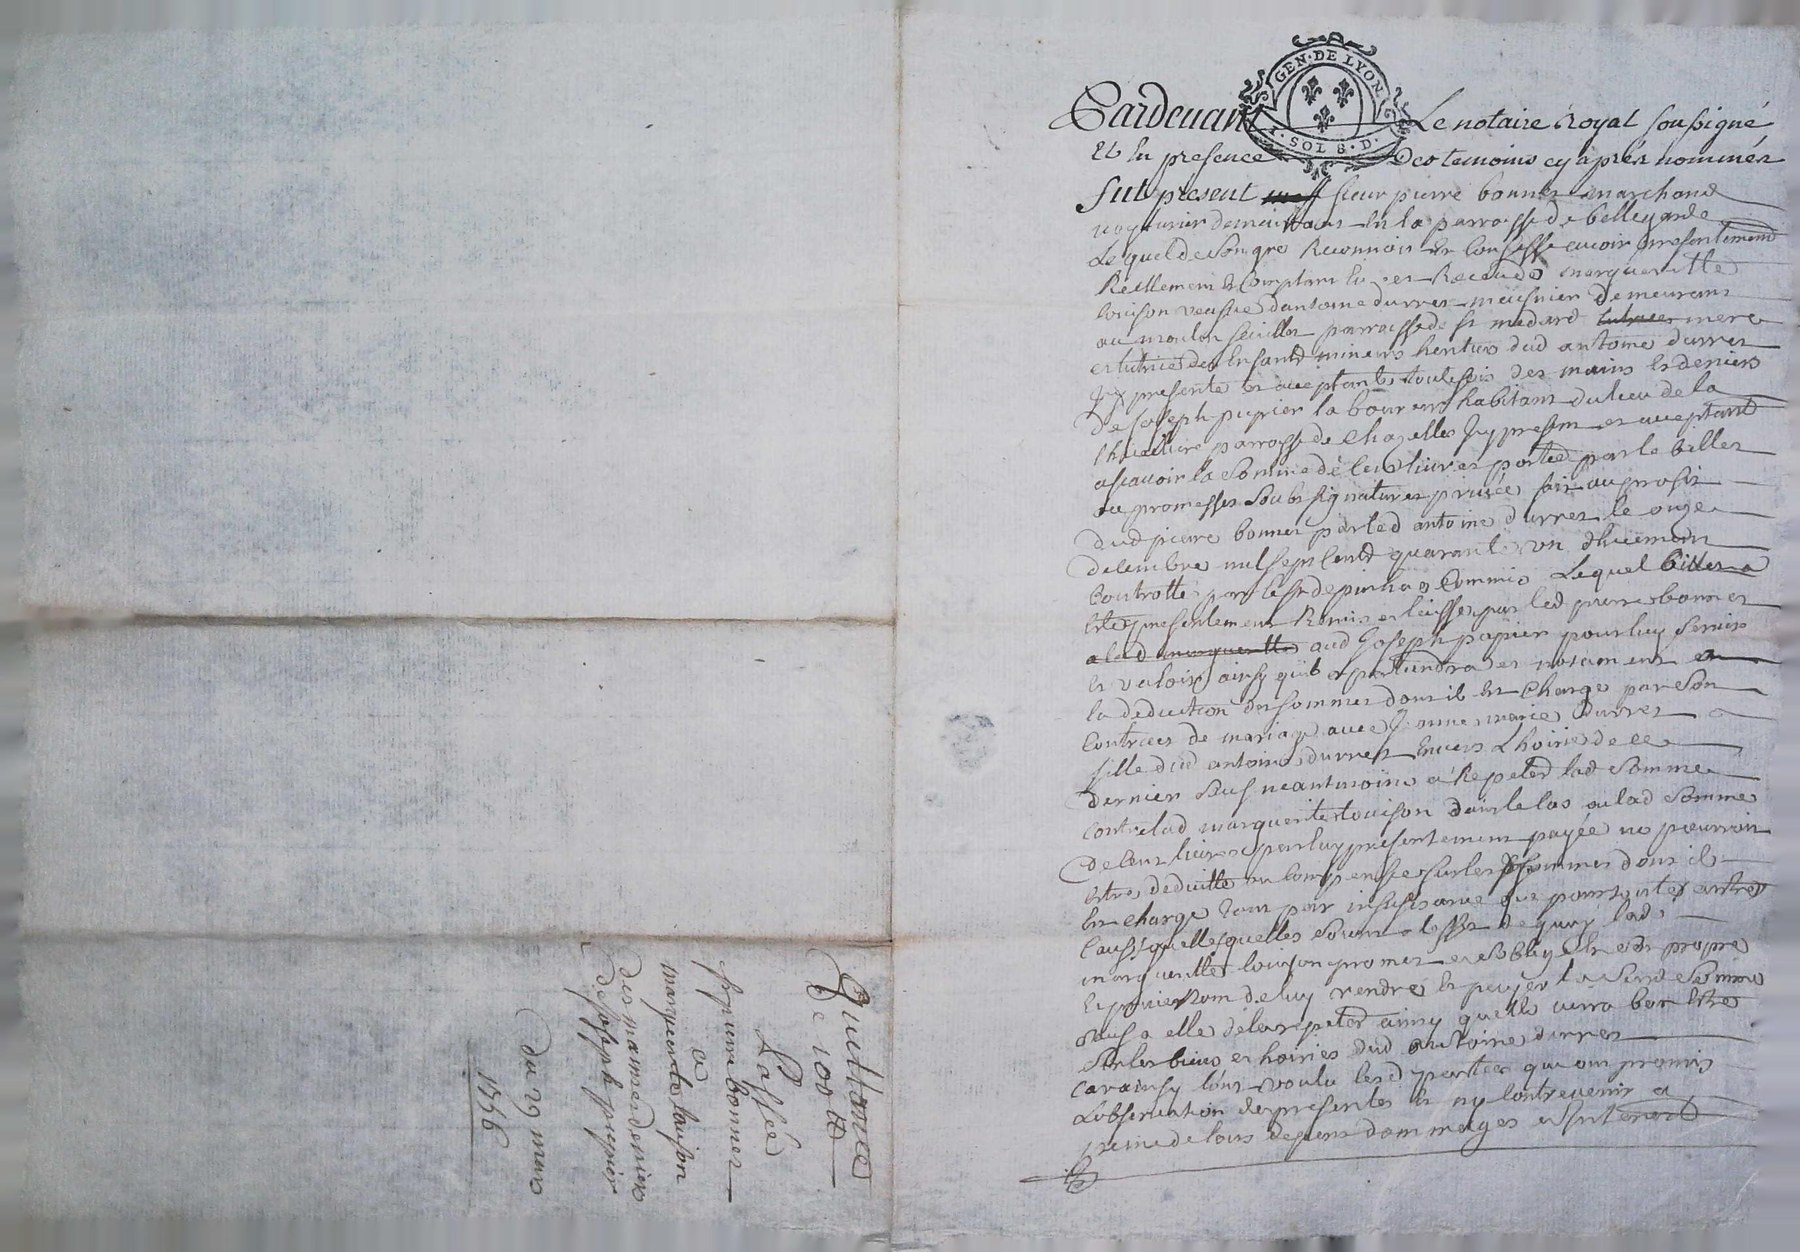 GEN·DE LYON
1·SOL 8·D·
Pardevant Le notaire Royal soussigné
Et En presence Des temoins cy après nommés
fut present sieur pierre bonner marchand
voyturier demeurant En la parroisse de bellegarde
Lequel de son gre Reconnois et confesse avoir presentement
Reellement et Comptant Eu et Receu de marguerite
louison veufve dantoine durres meusnier demeurant
au moulin parroisse de st medard tutrice mere
et tutrice des Enfants mineurs heritiers dud antoine durres
Icy presente et acceptante toutesfois des mains et deniers
de Joseph pupier laboureur habitant du lieu de la
parroisse de Chazelles Icy present et acceptant
ascavoir la Somme de Cent livres portée par le billet
ou promesses soubs signatures privée fait au profit
dud pierre bonner par led antoine durres le onze
decembre mil sept Cent quarante un dhuement
Controllé par le sr Commis Lequel billet a
Este presentement Remis et laissé par led pierre bonner
a lad marguerite aud Joseph pupier pour luy servir
et valoir ainsy quil apartiendra et notament en
la deduction des sommes dont il est Charge par son
Contract de mariage avec Jeanne marie durres
fille dud antoine durres Envers Lhoirie de ce
dernier sauf neantmoins a Repeter lad somme
contre lad marguerite louison dans le cas ou lad somme
de Cent livres par luy presentement payée ne pourroit
Estre deduitte ou compensée sur les sommes dont il
Est chargé tant par insufisance que pour toutes autres
Causes quelles quelles soient a leffet de quoy lad
marguerite louison promet et soblige En son propre
et privé nom de luy rendre et payer la susd somme
sauf a elle de la repeter ainsy quelle verra bon Estre
sur les biens et hoiries dud antoine durres
Car ainsy lont voulu lesd parties qui ont promis
Lobservation des presentes et ny Contrevenir a
peine de tous depens dommages et Interest
Quittance
De 100 tt
Passée
sr pierre bonner
a
marguerite louison
des mains et deniers
de Joseph pupier
Du 29 mars
1756